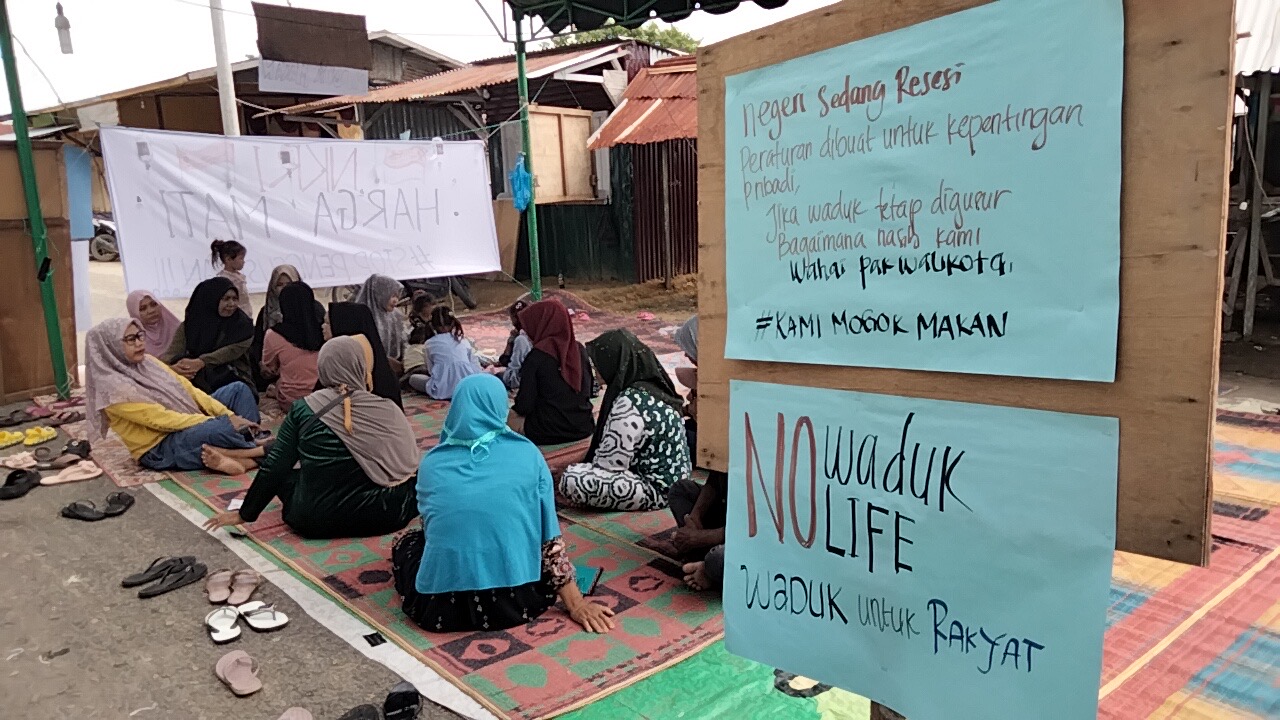 NKRI
HARGA MATI
negeri Sedang Resesi
Peraturan dibuat untuk kepentingan
pribadi,
Jika waduk tetap digusur
Bagaimana nasib kami
Wahai pak walikota,
#KAMI MOGOK MAKAN
NO waduk
LIFE
WADUK untuk RAKYAT